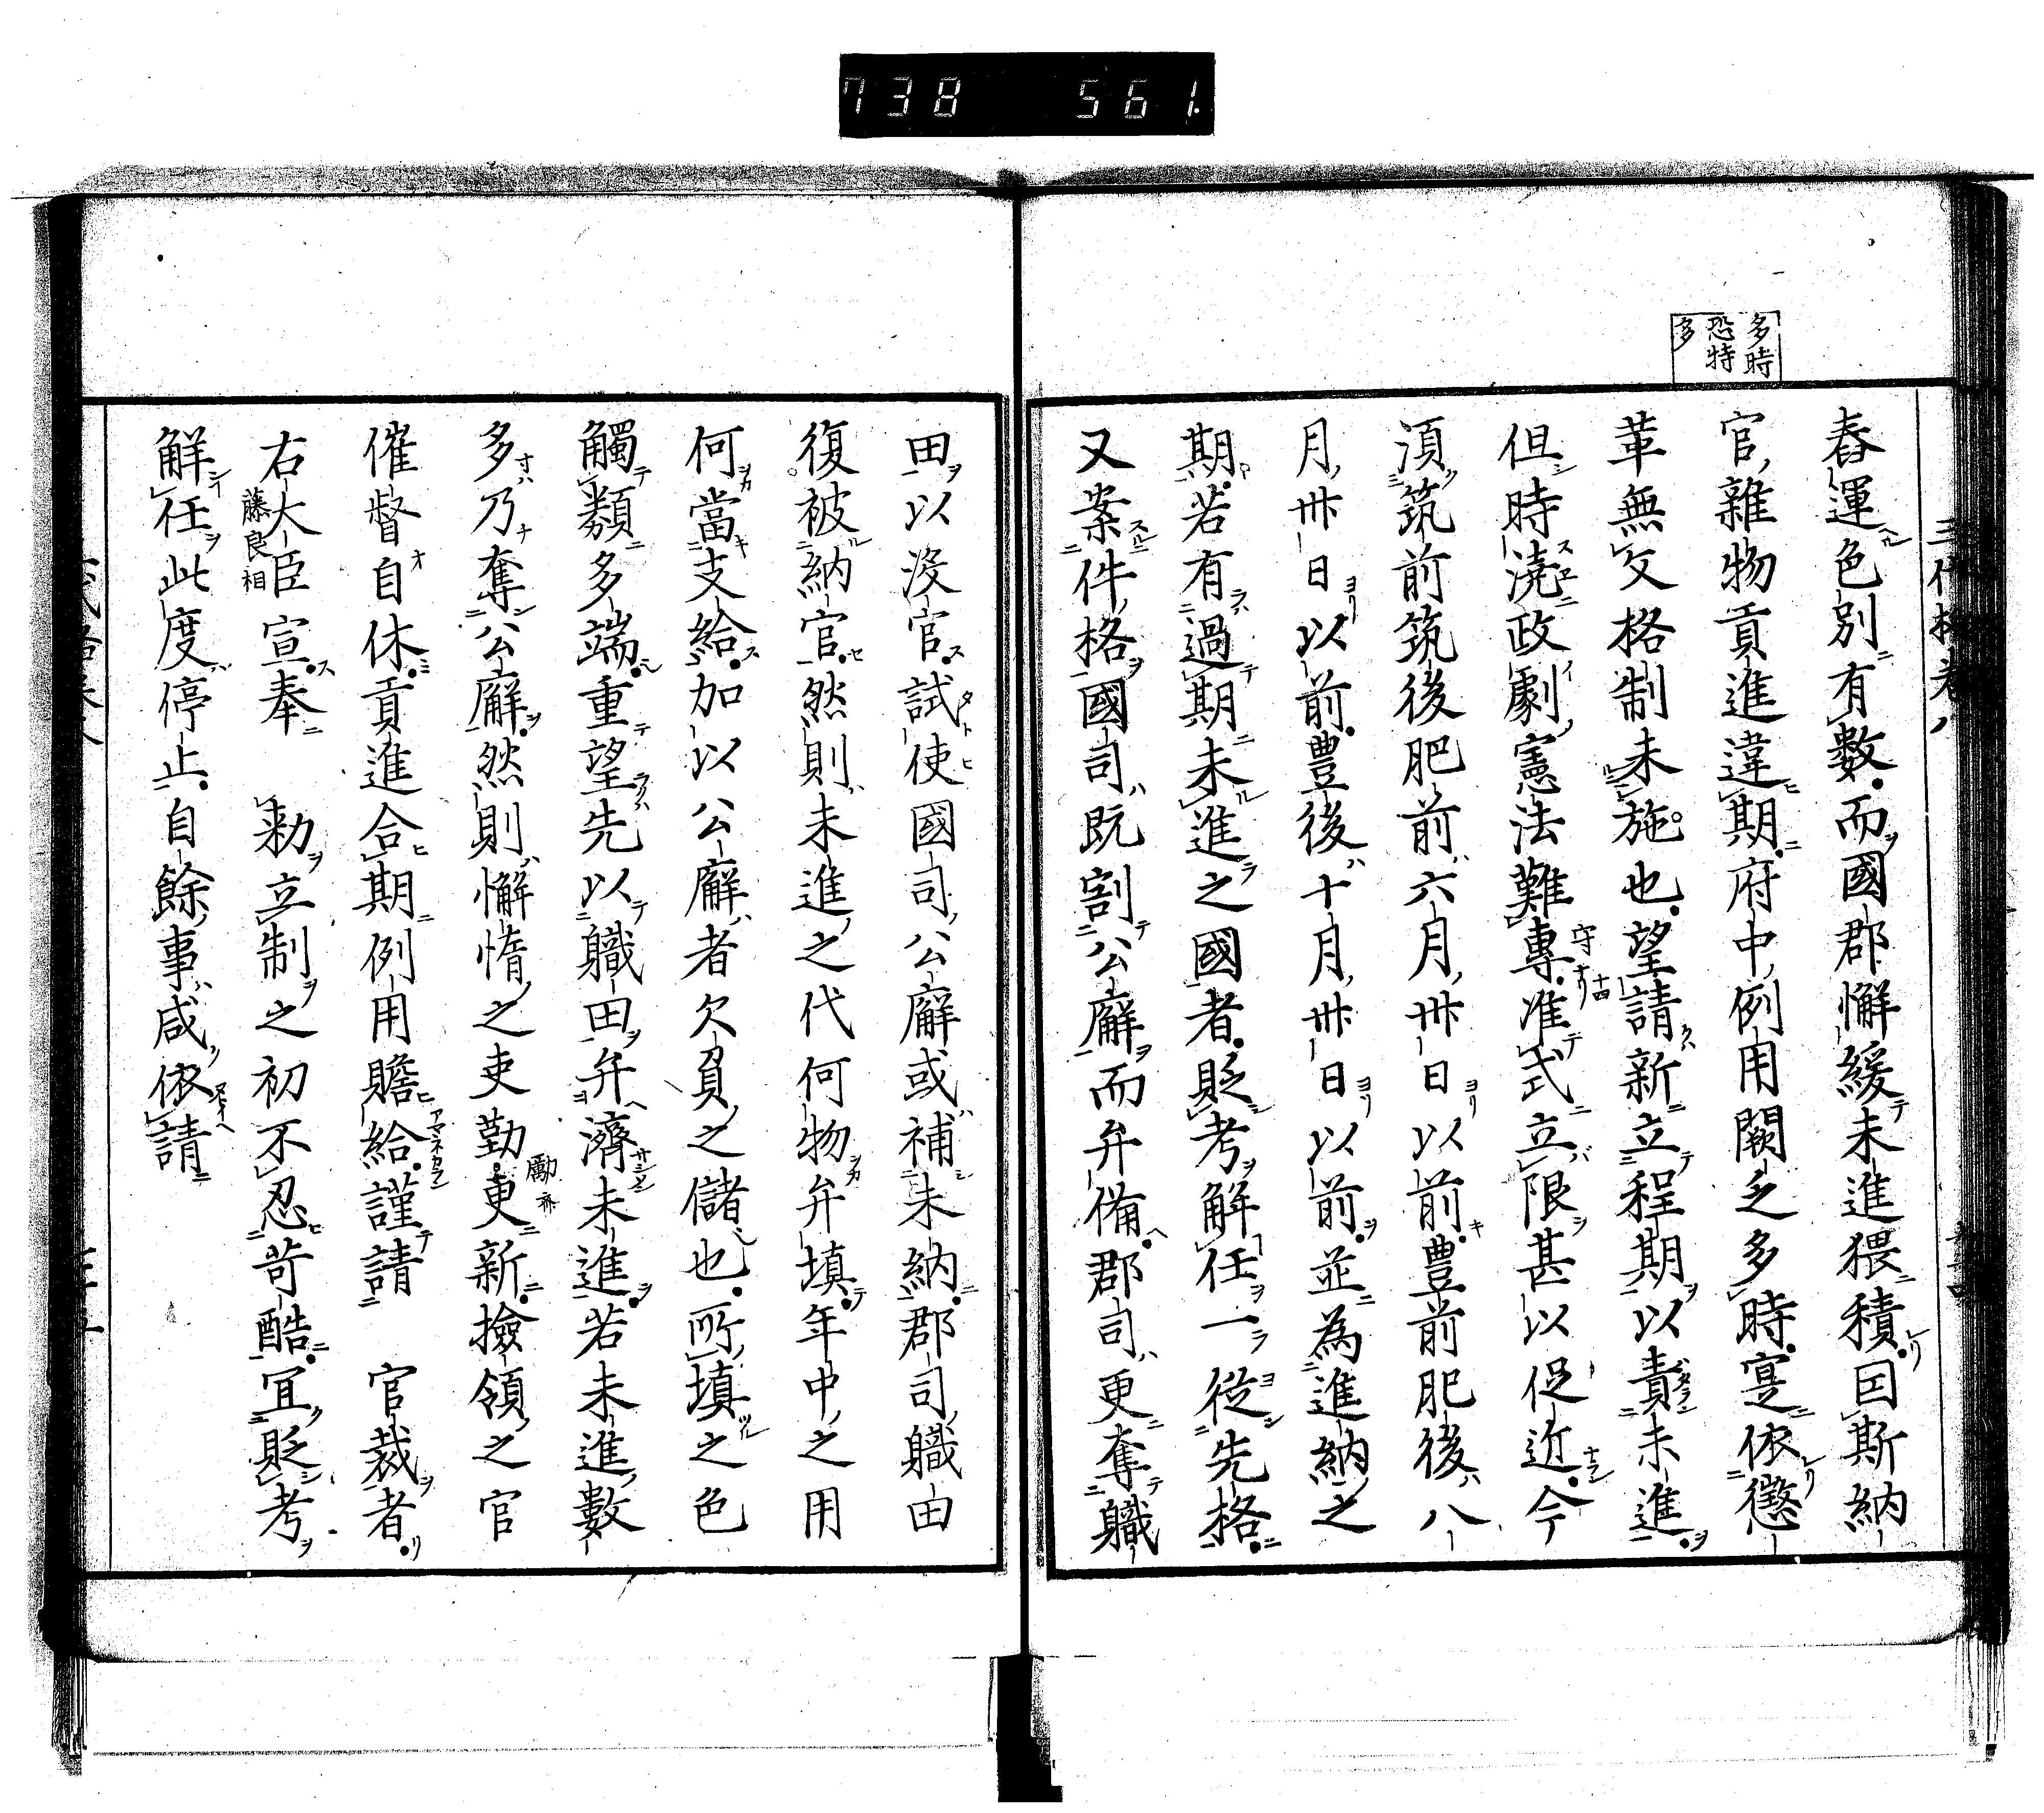 738 561
多時
恐特
多
舂運色別有數而國郡懈緩未進猥積因斯納
官雜物貢進違期府中例用闕乏多時寔依懲
革無文格制未施也望請新立程期以責未進
但時澆政劇憲法難專准式立限甚以促近今
須筑前筑後肥前六月卅日以前豊前肥後八
月卅日以前豊後十月卅日以前並為進納之
期若有過期未進之國者貶考解任一從先格
又案件格國司既割公廨而弁備郡司更奪職
田以没官試使國司公廨或補未納郡司職田
復被納官然則未進之代何物弁填年中之用
何當支給加以公廨者欠負之儲也所填之色
觸類多端重望先以職田弁濟未進若未進數
多乃奪公廨然則懈惰之吏勤更新撿領之官
催督自休貢進合期例用贍給謹請 官裁者
右大臣宣奉 勅立制之初不忍苛酷宜貶考
藤良相
解任此度停止自餘事咸依請